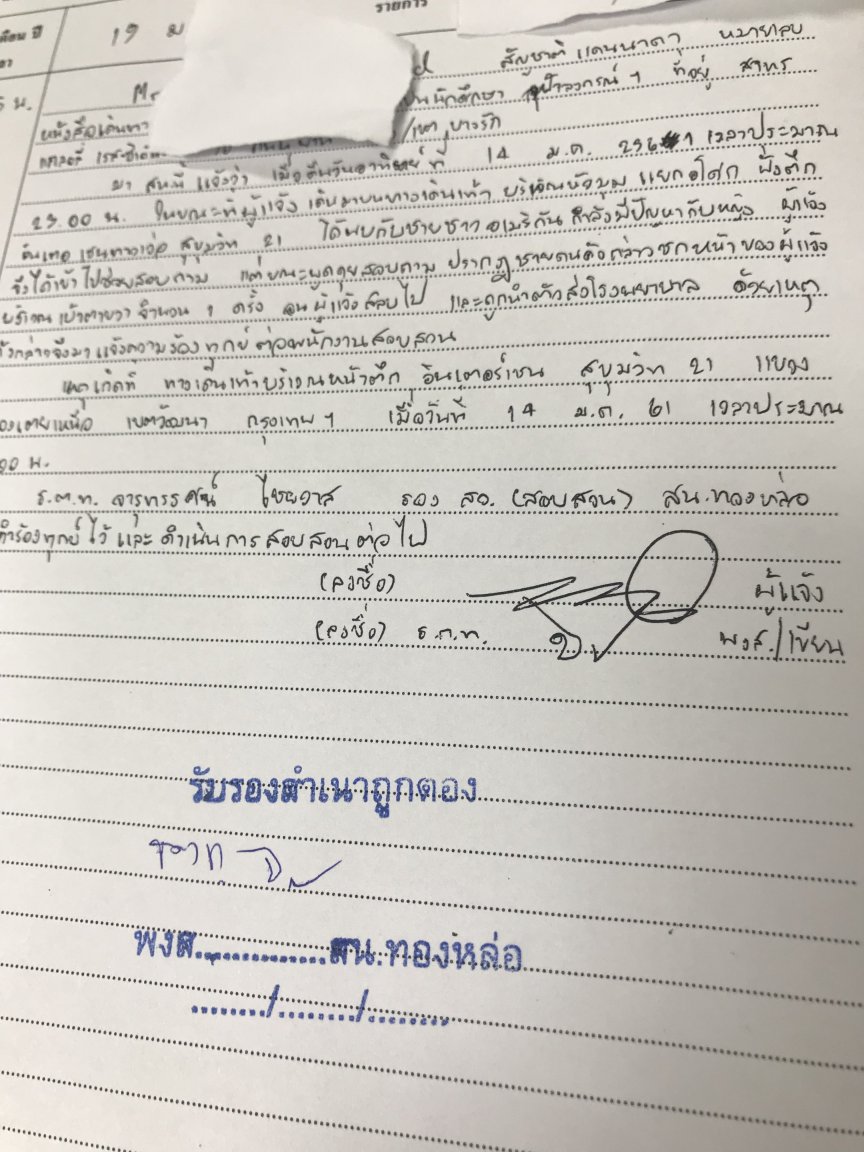 รายการ
เดือน ปี 19 ม
น. Mr สัญชาติ แคนนาดา หมายเลข
หนังสือเดินทา เป็นนักศึกษา จุฬาลงกรณ์ฯ ที่อยู่ สาทร
/เขต บางรัก
มา สน.นี้ แจ้งว่า เมื่อคืนวันอาทิตย์ที่ 14 ม.ค. 2561 เวลาประมาณ
23.00 น. ในขณะที่ผู้แจ้ง เดินมาบนทางเดินเท้า บริเวณหัวมุม แยกอโศก ฝั่งตึก
อินเตอเชนทาวเวอ สุขุมวิท 21 ได้พบกับชายชาว อเมริกัน กำลังมีปัญหากับหญิง ผู้แจ้ง
จึงได้เข้าไปช่วยสอบถาม แต่ขณะพูดคุยสอบถาม ปรากฏชายคนดังกล่าวชกหน้าของผู้แจ้ง
บริเวณเบ้าตาขวา จำนวน 1 ครั้ง จนผู้แจ้งสลบไป และถูกนำตัวส่งโรงพยาบาล ด้วยเหตุ
ดังกล่าวจึงมาแจ้งความร้องทุกข์ต่อพนักงานสอบสวน
เหตุเกิดที่ ทางเดินเท้าบริเวณหน้าตึก อินเตอร์เชน สุขุมวิท 21 แขวง
คลองเตยเหนือ เขตวัฒนา กรุงเทพฯ เมื่อวันที่ 14 ม.ค. 61 เวลาประมาณ
00 น.
ร.ต.ท. จารุทรรศน์ ไชยวาส รอง สว. (สอบสวน) สน.ทองหล่อ
คำร้องทุกข์ไว้ และดำเนินการสอบสวนต่อไป
(ลงชื่อ) ผู้แจ้ง
(ลงชื่อ) ร.ต.ท. พงส./เขียน
รับรองสำเนาถูกตอง
พงส..............สน.ทองหล่อ
......../......../........